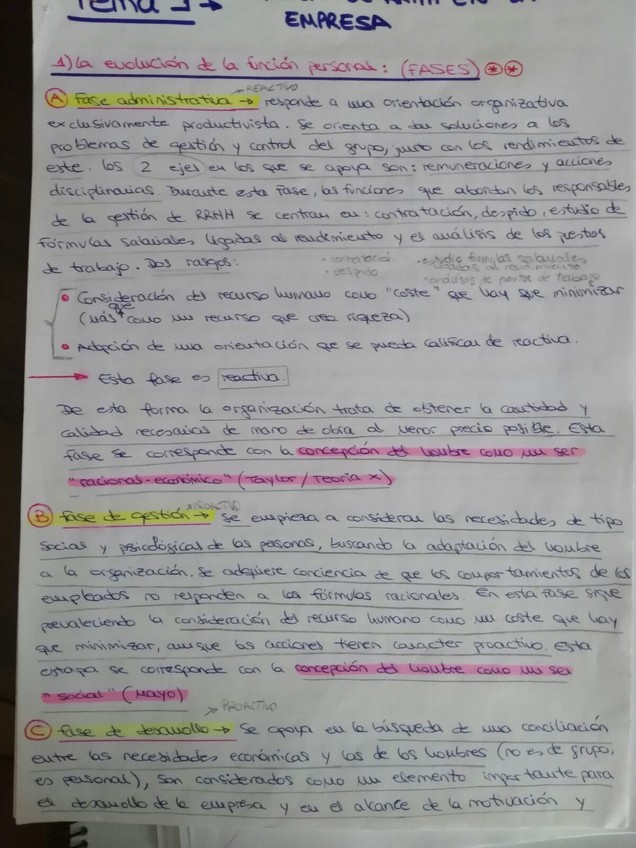 Tema 1 →
EMPRESA
1) La evolución de la función personal: (FASES) **
→ REACTIVO
A Fase administrativa → responde a una orientación organizativa
exclusivamente productivista. Se orienta a dar soluciones a los
problemas de gestión y control del grupo, junto con los rendimientos de
este. los 2 ejes en los que se apoya son: remuneraciones y acciones
disciplinarias. Durante esta fase, las funciones que abordan los responsables
de la gestión de RRHH se centran en: contratación, despido, estudio de
fórmulas salariales ligadas al rendimiento y el análisis de los puestos
de trabajo. Dos rasgos:
• contratación
• despido
• estudio formulas salariales
ligadas al rendimiento
• analisis de puestos de trabajo
• Consideración del recurso humano como "coste" que hay que minimizar
(más que como un recurso que crea riqueza)
• Adopción de una orientación que se pueda calificar de reactiva.
→ Esta fase es reactiva.
De esta forma la organización trata de obtener la cantidad y
calidad necesarias de mano de obra al menor precio posible. Esta
fase se corresponde con la concepción del hombre como un ser
"racional-económico" (Taylor / Teoría X)
PROACTIVO
B fase de gestión → Se empieza a considerar las necesidades de tipo
social y psicológicas de las personas, buscando la adaptación del hombre
a la organización. Se adquiere conciencia de que los comportamientos de los
empleados no responden a las fórmulas racionales. En esta fase sigue
prevaleciendo la consideración del recurso humano como un coste que hay
que minimizar, aunque las acciones tienen caracter proactivo. Esta
etapa se corresponde con la concepción del hombre como un ser
"social" (Mayo)
→ PROACTIVO
C fase de desarrollo → Se apoya en la búsqueda de una conciliación
entre las necesidades económicas y las de los hombres (no es de grupo,
es personal), son considerados como un elemento importante para
el desarrollo de la empresa y en el alcance de la motivación y